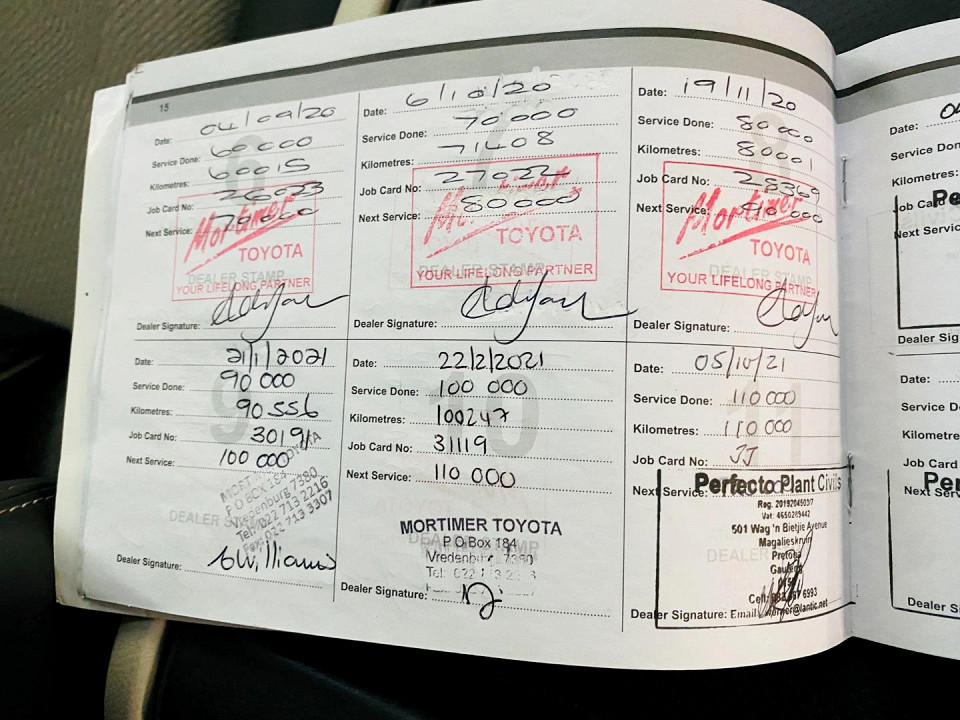 15
Date: 04/09/20
Service Done: 60000
Kilometres: 60015
Job Card No: 26023
Next Service: 70000
Mortimer
TOYOTA
DEALER STAMP
YOUR LIFELONG PARTNER
Dealer Signature:
Date: 6/10/20
Service Done: 70000
Kilometres: 71408
Job Card No: 27022
Next Service: 80000
TOYOTA
DEALER STAMP
YOUR LIFELONG PARTNER
Dealer Signature:
Date: 19/11/20
Service Done: 80000
Kilometres: 80001
Job Card No: 28369
Next Service: 90 000
Mortimer
TOYOTA
DEALER STAMP
YOUR LIFELONG PARTNER
Dealer Signature:
9
Date: 21/1/2021
Service Done: 90 000
Kilometres: 90 556
Job Card No: 30191
Next Service: 100 000
P O BOX 184
Vredenburg, 7380
Tel: 022 713 2216
Fax: 022 713 3307
DEALER
Dealer Signature: Williams
10
Date: 22/2/2021
Service Done: 100 000
Kilometres: 100247
Job Card No: 31119
Next Service: 110 000
MORTIMER TOYOTA
P O Box 184
Vredenburg, 7380
Tel: 022
Dealer Signature:
11
Date: 05/10/21
Service Done: 110 000
Kilometres: 110 000
Job Card No: JJ
Next Service:
Perfecto Plant Civils
Reg.
Vat: 4650289442
501 Wag 'n Bietjie Avenue
Magalieskruin
Pretoria
Gauteng
DEALER
Cell:
Dealer Signature: Email
Date:
Service Done:
Kilometres:
Job Card
Next Service
Dealer Sig
Date:
Service D
Kilometre
Job Card
Next Serv
Dealer Si